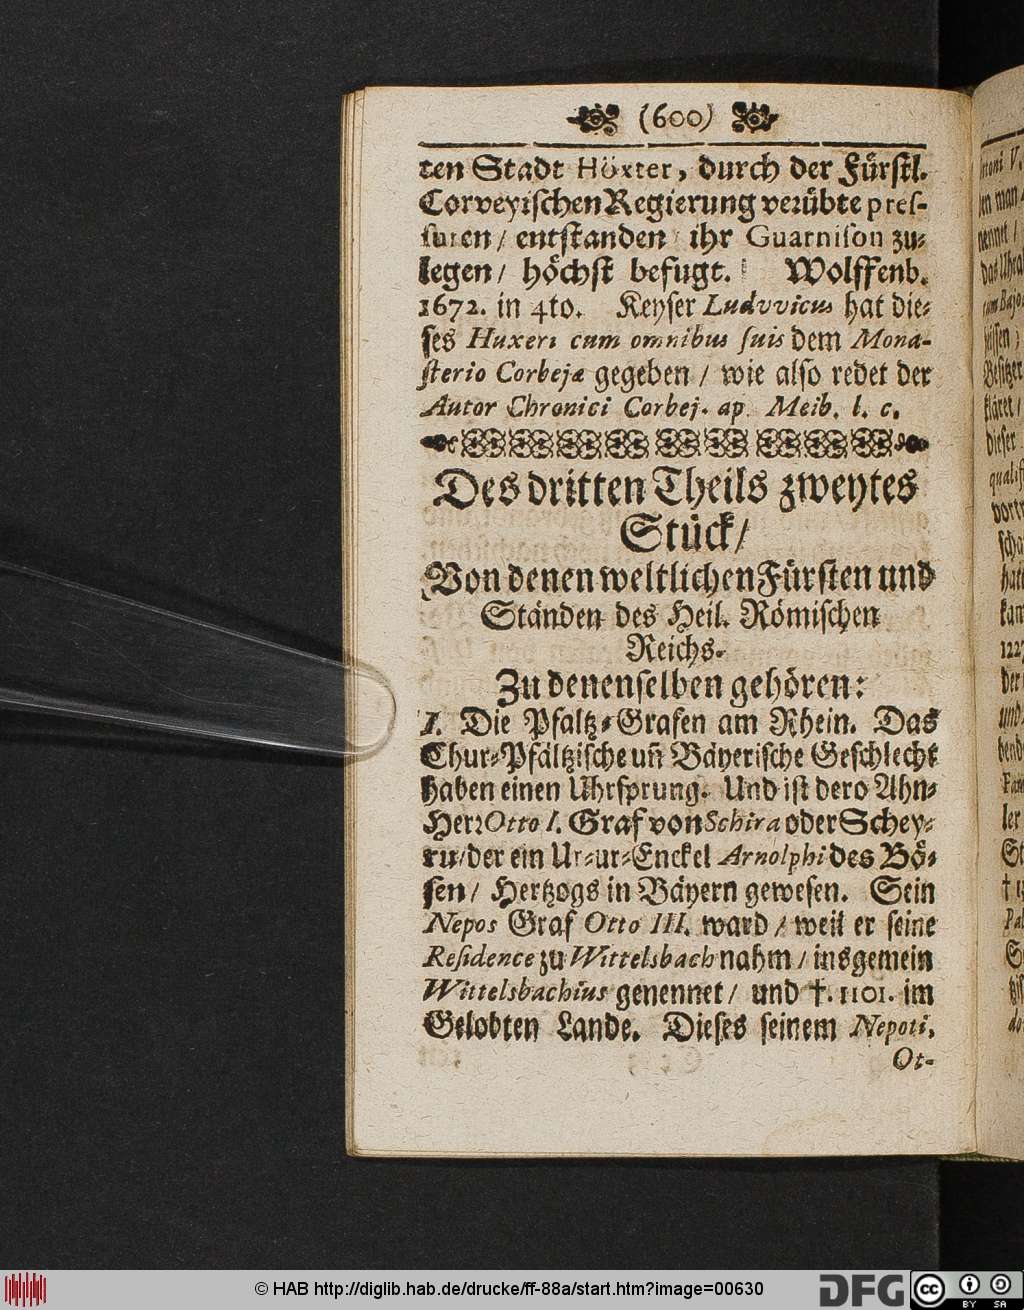 (600)
ten Stadt Höxter, durch der Fürstl.
Corveyischen Regierung verübte pres-
suren / entstanden / ihr Guarnison zu-
legen / höchst befugt. Wolffenb.
1672. in 4to. Keyser Ludvvicus hat die-
ses Huxeri cum omnibus suis dem Mona-
sterio Corbejæ gegeben / wie also redet der
Autor Chronici Corbej. ap. Meib. l. c.
Des dritten Theils zweytes
Stück /
Von denen weltlichen Fürsten und
Ständen des Heil. Römischen
Reichs.
Zu denenselben gehören:
I. Die Pfaltz-Grafen am Rhein. Das
Chur-Pfältzische un̄ Bäyerische Geschlecht
haben einen Uhrsprung. Und ist dero Ahn-
Herr Otto I. Graf von Schira oder Schey-
rn / der ein Ur-ur-Enckel Arnolphi des Bö-
sen / Hertzogs in Bäyern gewesen. Sein
Nepos Graf Otto III. ward / weil er seine
Residence zu Wittelsbach nahm / insgemein
Wittelsbachius genennet / und †. 1101. im
Gelobten Lande. Dieses seinem Nepoti,
Ot-
© HAB http://diglib.hab.de/drucke/ff-88a/start.htm?image=00630
DFG
cc
BY SA